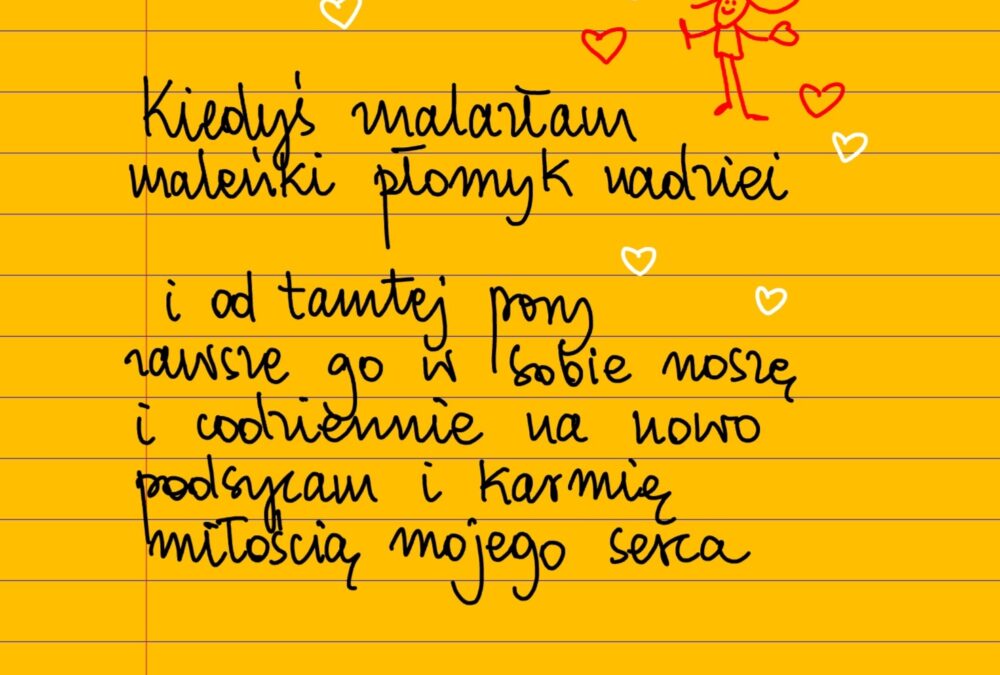 Kiedyś znalazłam
maleńki płomyk nadziei
i od tamtej pory
zawsze go w sobie noszę
i codziennie na nowo
podsycam i karmię
miłością mojego serca